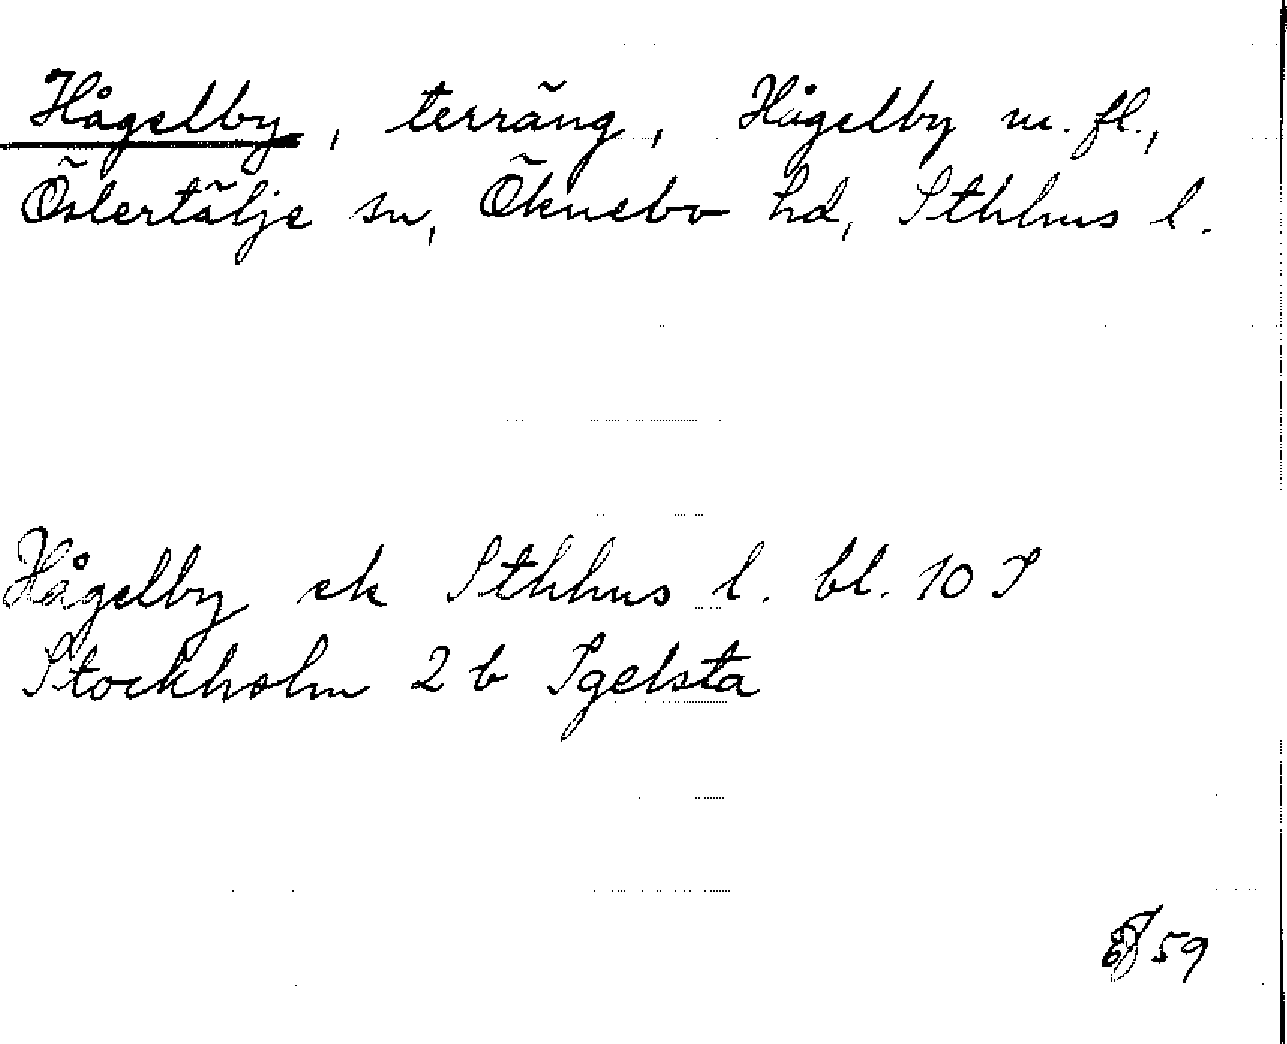 Hågelby, terräng, Hågelby m. fl.,
Östertälje sn, Öknebo hd, Sthlms l.
Hågelby ek Sthlms l. bl. 10 I
Stockholm 2 b Igelsta
59